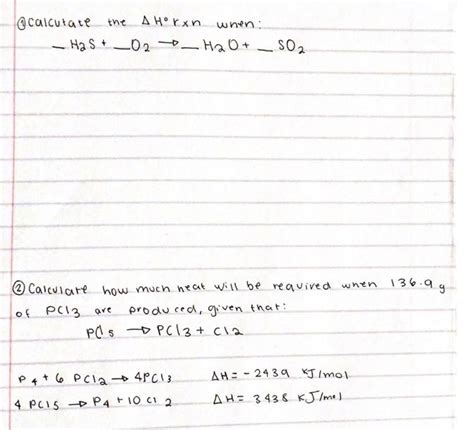 ① Calculate the ΔH°rxn when:
_ H2S + _ O2 → _ H2O + _ SO2
② Calculate how much heat will be required when 136.9 g
of PCl3 are produced, given that:
PCl5 → PCl3 + Cl2
P4 + 6 PCl2 → 4PCl3 ΔH = -2439 KJ/mol
4 PCl5 → P4 + 10 Cl 2 ΔH = 3438 KJ/mol